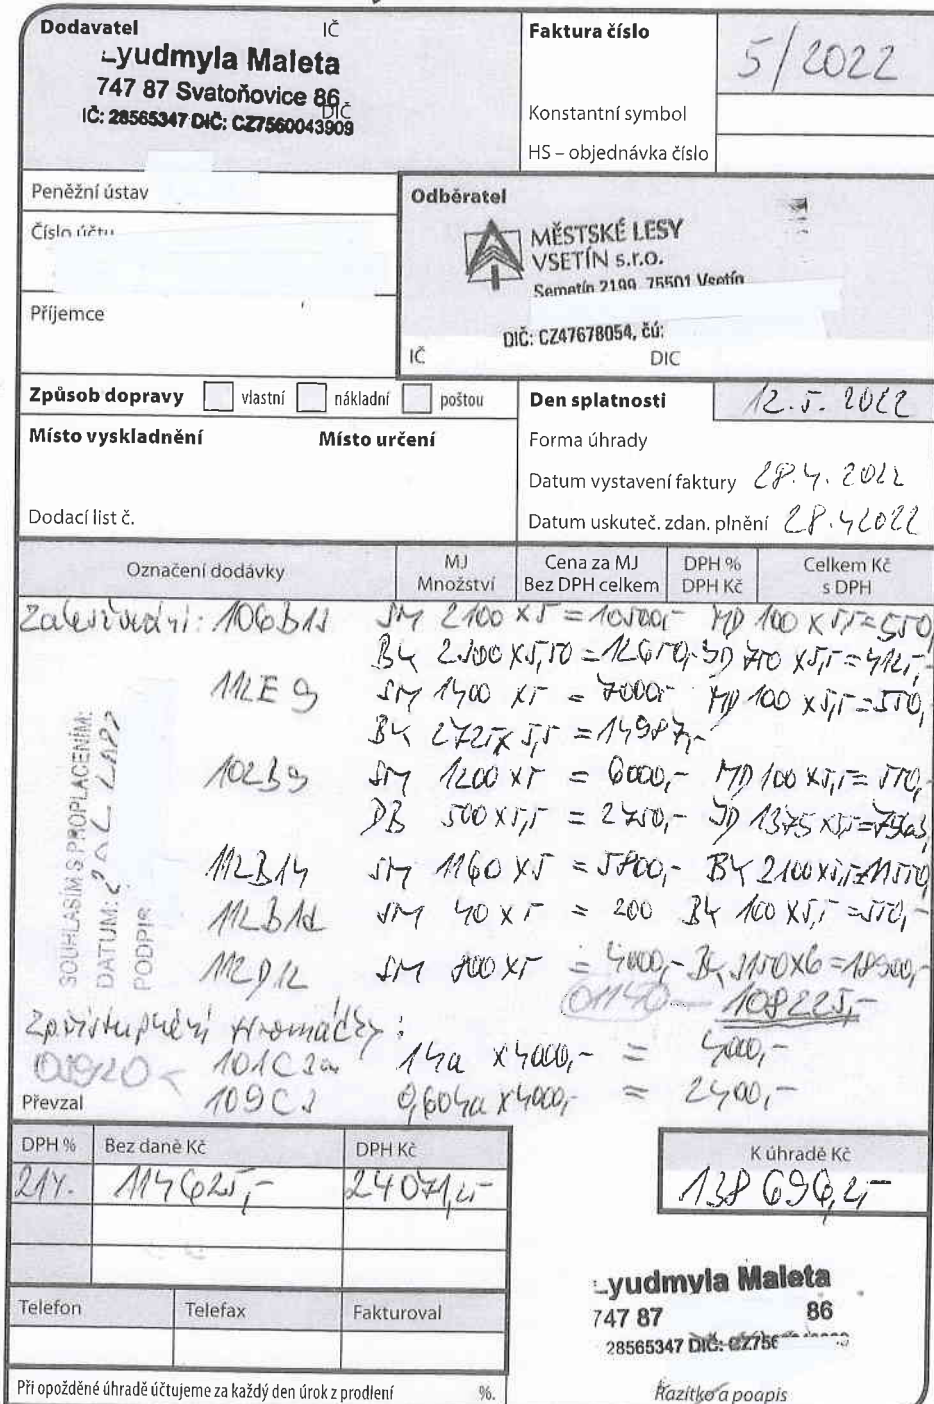 Dodavatel IČ
Lyudmyla Maleta
747 87 Svatoňovice 86
DIČ
IČ: 28565347 DIČ: CZ7560043909
Faktura číslo 5/2022
Konstantní symbol
HS – objednávka číslo
Peněžní ústav
Číslo účtu
Příjemce
Odběratel
MĚSTSKÉ LESY
VSETÍN s.r.o.
Semetín 2199, 75501 Vsetín
DIČ: CZ47678054, čú:
IČ DIČ
Způsob dopravy vlastní nákladní poštou
Den splatnosti 12.5.2022
Místo vyskladnění Místo určení
Forma úhrady
Datum vystavení faktury 28.4.2022
Dodací list č.
Datum uskuteč. zdan. plnění 28.4.2022
Označení dodávky MJ Množství Cena za MJ Bez DPH celkem DPH % DPH Kč Celkem Kč s DPH
Zalesňování: 106B1 SM 2100 x 5 = 10500,- MD 100 x 5,5 = 550,
BK 2300 x 5,50 = 12650,- JD 750 x 5,5 = 4125,-
112E9 SM 1400 x 5 = 7000,- MD 100 x 5,5 = 550,
BK 2725 x 5,5 = 14987,-
102B9 SM 1200 x 5 = 6000,- MD 100 x 5,5 = 550,-
DB 500 x 5,5 = 2750,- JD 1375 x 5,5 = 7563
112B14 SM 1160 x 5 = 5800,- BK 2100 x 5,5 = 11550
112B1 SM 40 x 5 = 200 BK 100 x 5,5 = 550,-
112D12 SM 800 x 5 = 4000,- BK 3150 x 6 = 18900,-
01140 108225,-
SOUHLASÍM S PROPLACENÍM:
DATUM:
PODPIS
101C 1ha x 4000,- = 4000,-
109C 0,60ha x 4000,- = 2400,-
Převzal
DPH % Bez daně Kč DPH Kč
21%. 114625,- 24071,2-
K úhradě Kč
138 696,2,-
Lyudmyla Maleta
747 87 86
28565347 DIČ:
Telefon Telefax Fakturoval
Při opožděné úhradě účtujeme za každý den úrok z prodlení %.
Razítko a podpis